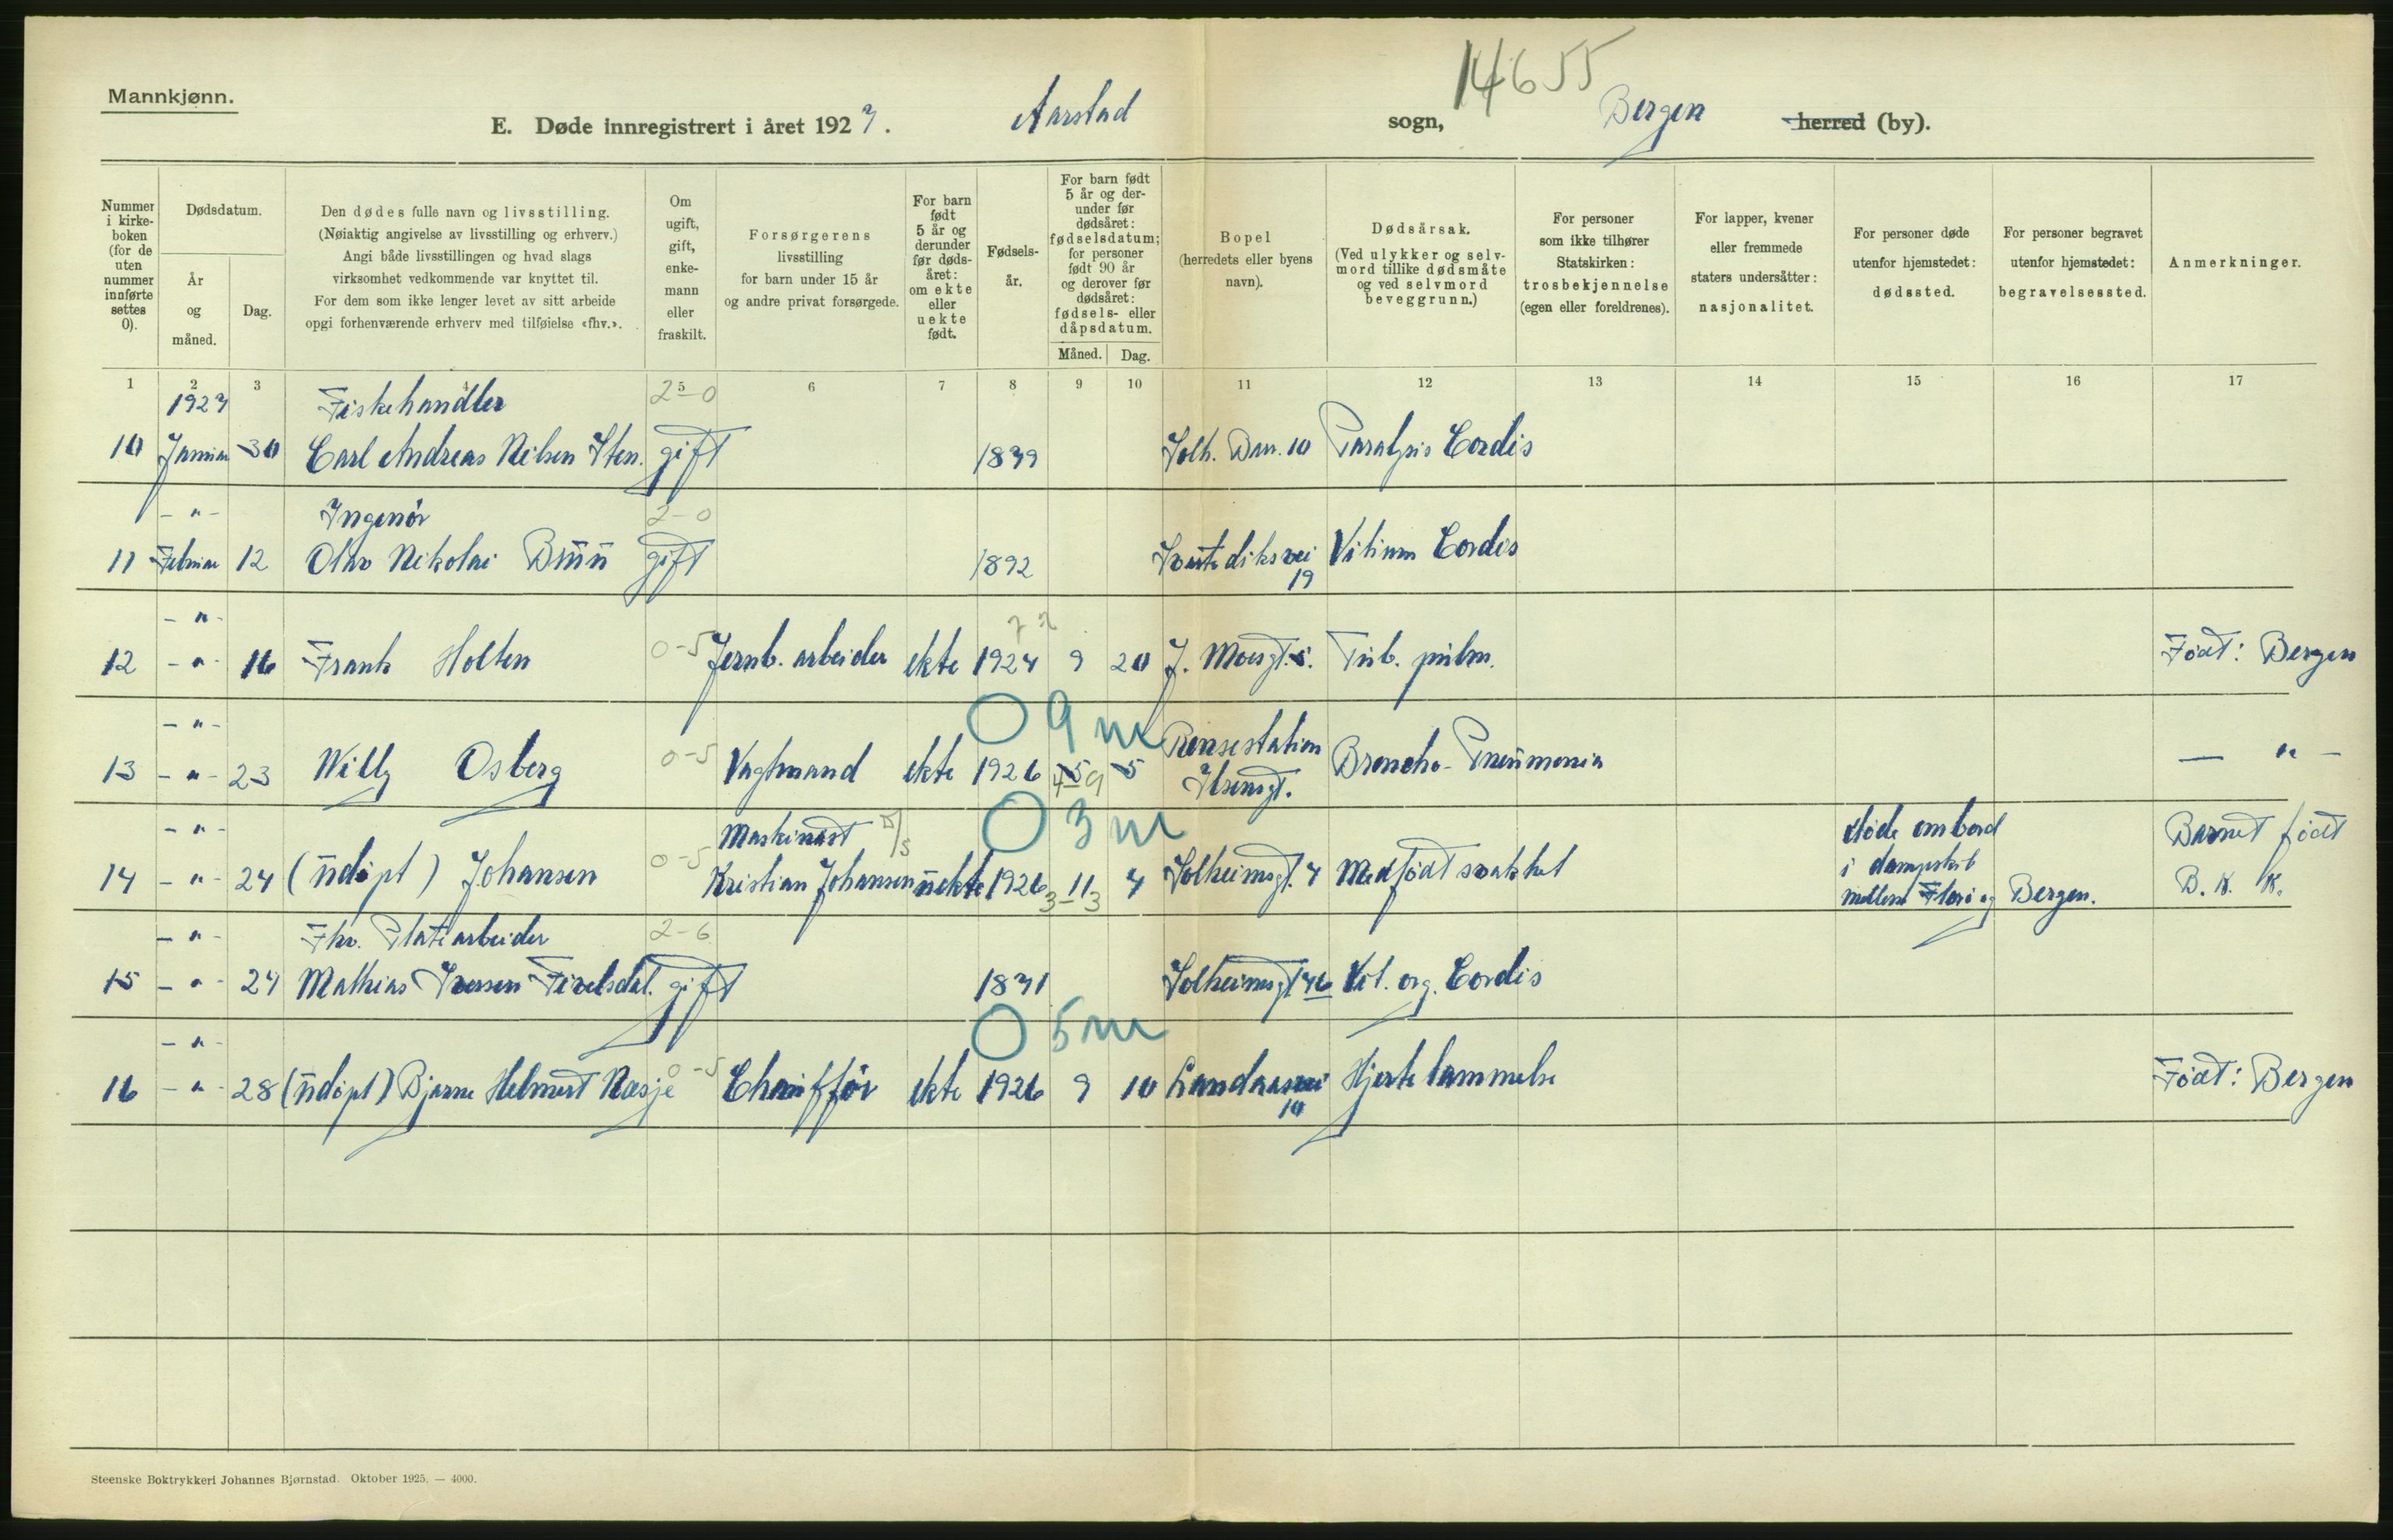 Mannkjønn.
14655
E. Døde innregistrert i året 1927. Aarstad sogn, Bergen herred (by).
Nummer i kirke-boken (for de uten nummer innførte settes 0).
Dødsdatum.
År og måned.
Dag.
Den dødes fulle navn og livsstilling.
(Nøiaktig angivelse av livsstilling og erhverv.)
Angi både livsstillingen og hvad slags
virksomhet vedkommende var knyttet til.
For dem som ikke lenger levet av sitt arbeide
opgi forhenværende erhverv med tilføielse «fhv.».
Om ugift, gift, enke-mann eller fraskilt.
Forsørgerens
livsstilling
for barn under 15 år
og andre privat forsørgede.
For barn født 5 år og derunder før døds-året: om ekte eller uekte født.
Fødsels-år.
For barn født 5 år og der-under før dødsåret: fødselsdatum; for personer født 90 år og derover før dødsåret: fødsels- eller dåpsdatum.
Måned. Dag.
Bopel
(herredets eller byens
navn).
Dødsårsak.
(Ved ulykker og selv-
mord tillike dødsmåte
og ved selvmord
beveggrunn.)
For personer
som ikke tilhører
Statskirken:
trosbekjennelse
(egen eller foreldrenes).
For lapper, kvener
eller fremmede
staters undersåtter:
nasjonalitet.
For personer døde
utenfor hjemstedet:
dødssted.
For personer begravet
utenfor hjemstedet:
begravelsessted.
Anmerkninger.
1 2 3 4 5 6 7 8 9 10 11 12 13 14 15 16 17
1927 Fiskehandler 2-0
10 Januar 30 Carl Andreas Nilsen Sten. gift 1839 Solh. Dan. 10 Paralysis Cordis
-"- Ingeniør 2-0
11 Februar 12 Olav Nikolai Brun gift 1892 19 Vitium Cordis
-"-
12 -"- 16 Frank Holten 0-5 Jernb. arbeider ekte 1924 9 20 J. Moesgt. Tub. pulm. Født: Bergen
0 9 m
-"- Rensestation
13 -"- 23 Willy Osberg 0-5 Vagtmand ekte 1926 5 5 Ibsensgt. Broncho-Pneumonia -"-
4-9
0 3 m
-"- Maskinist D/S døde ombord Barnet født
14 -"- 24 (Udøpt) Johansen 0-5 Kristian Johansen uekte 1926 11 7 Solheimsgt. 7 Medfødt svakhet i dampskib B. K. K.
3-3 mellem Florø og Bergen.
-"- Fhv. Platearbeider 2-6
15 -"- 24 Mathias Iversen gift 1831 Solheimsgt 46 Vit. org. Cordis
0 5 m
-"-
16 -"- 28 (Udøpt) Bjarne Helmert Næsje 0-5 Chauffør ekte 1926 9 10 Landaasvei Hjertelammelse Født: Bergen
10
Steenske Boktrykkeri Johannes Bjørnstad. Oktober 1925. — 4000.